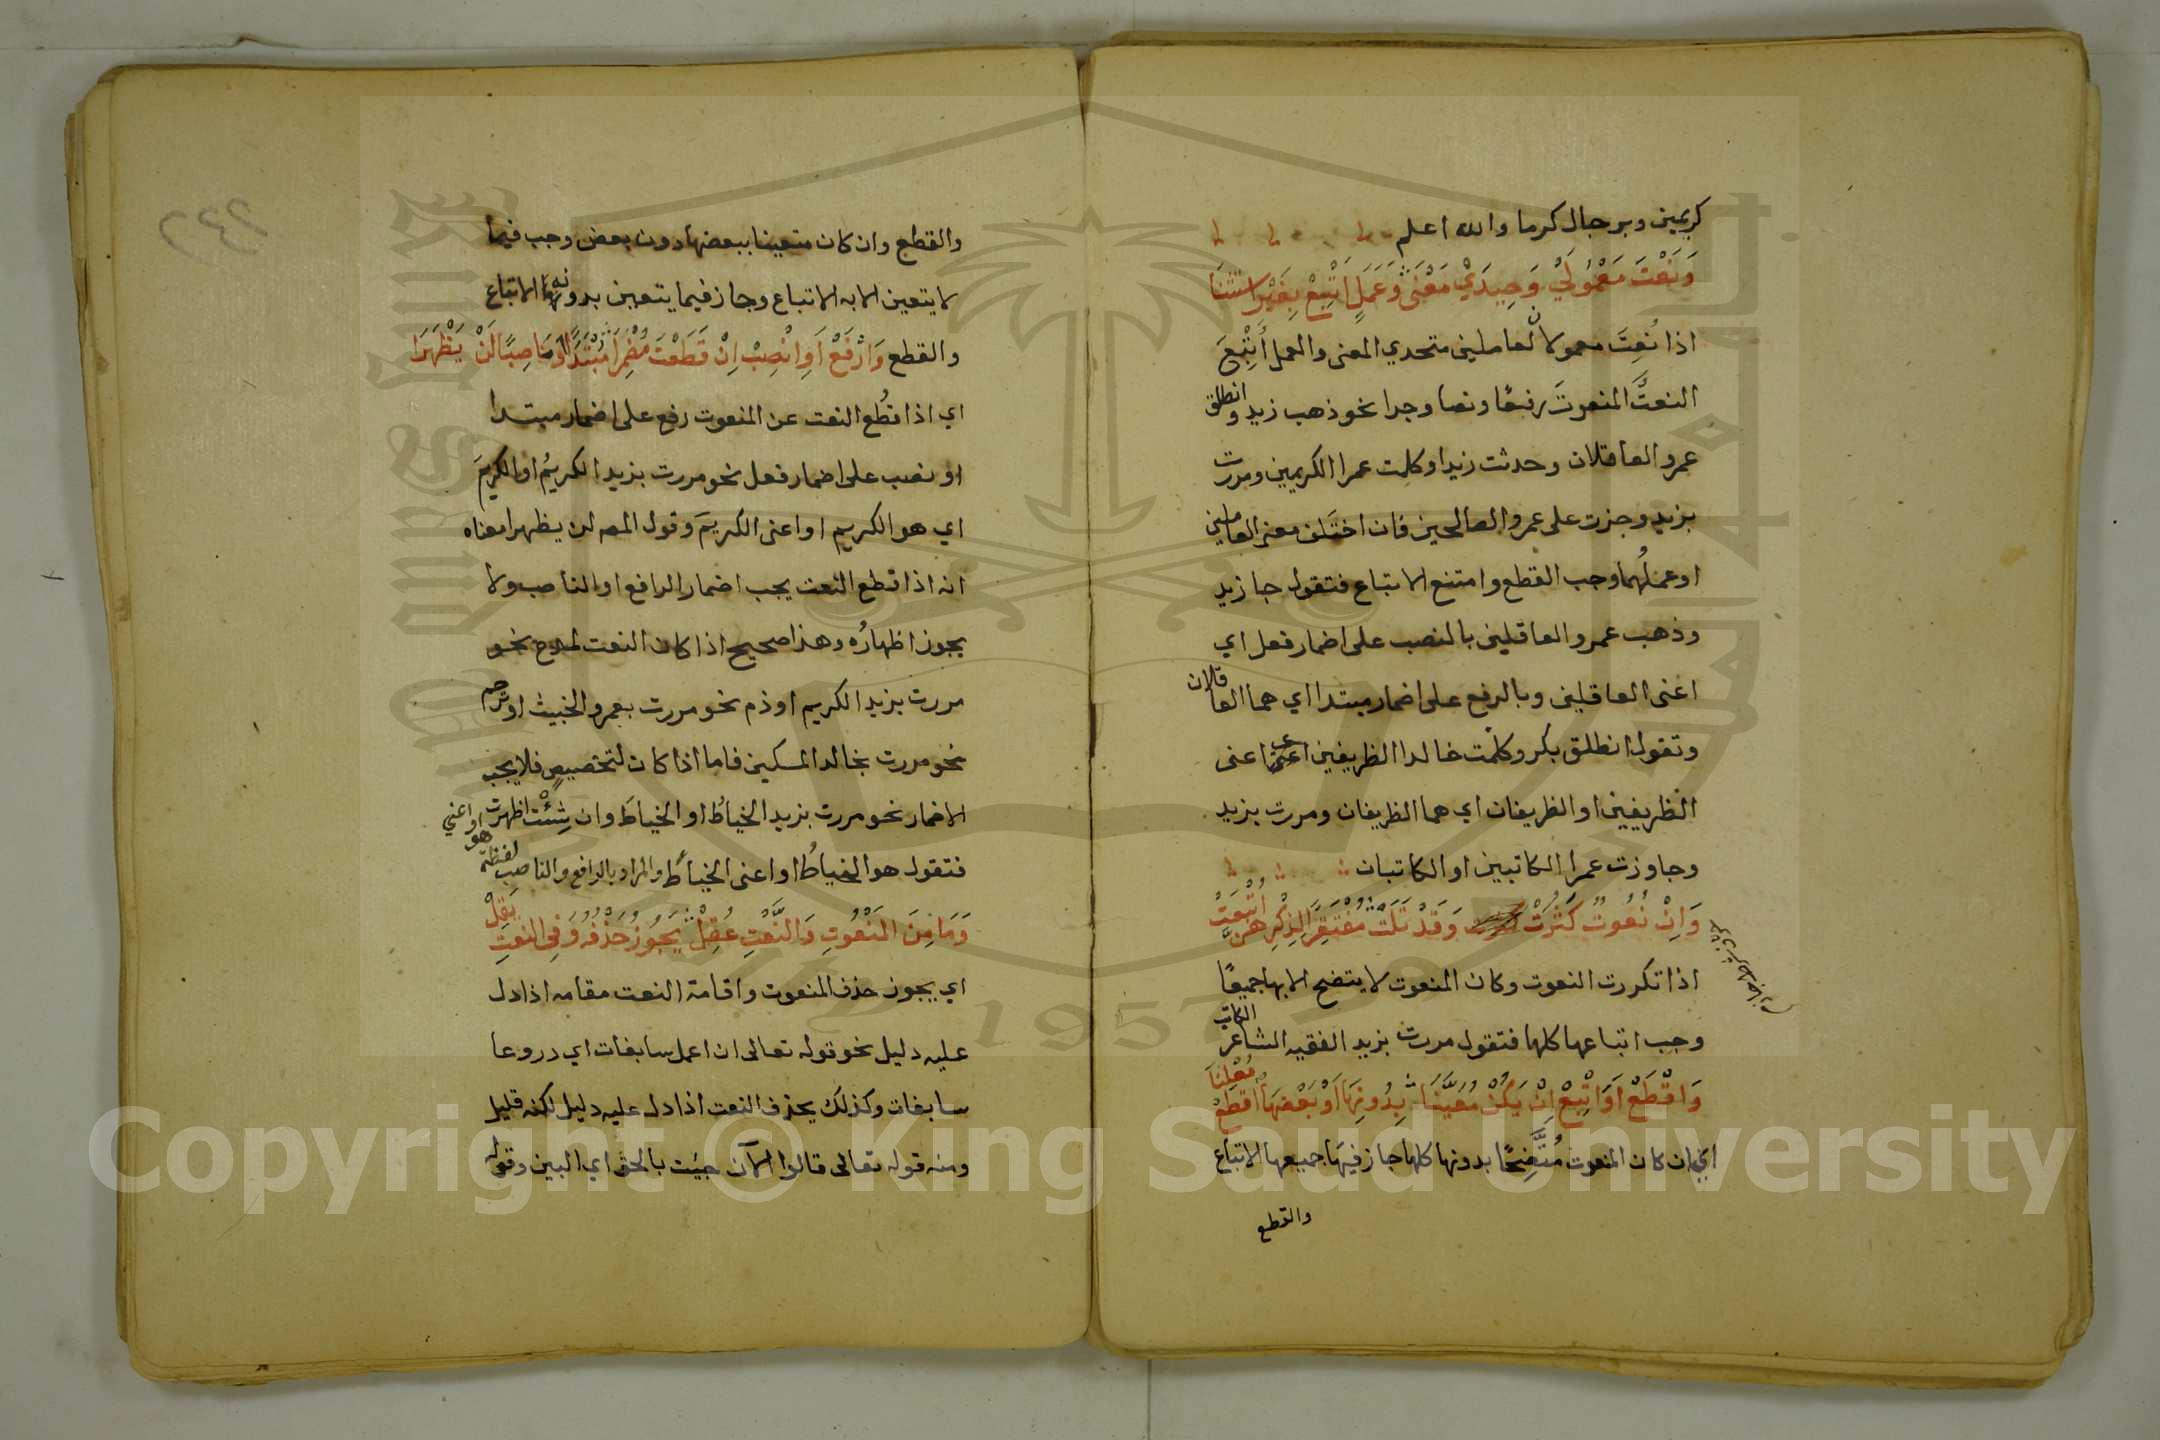 كريمين وبرجال كرما والله اعلم
وَنَعْتَ مَعْمُولَيْ وَحِيدَيْ مَعْنَى وَعَمَلٍ اَتْبِعْ بِغَيْرِ استثنَا
اذا نُعِتَ معمولان لعاملين متحدي المعنى والعمل أُتْبِعَ
النعتُ المنعوتَ رفعًا ونصبا وجرا نحو ذهب زيد وانطلق
عمرو العاقلان وحدثت زيدا وكلمت عمرا الكريمين ومررت
بزيد وجزت على عمرو الصالحين فان اختلف معنى العاملين
او عملُهما وجب القطع وامتنع الاتباع فتقول جا زيد
وذهب عمرو العاقلين بالنصب على اضمار فعل اي
اعنى العاقلين وبالرفع على اضمار مبتدا اي هما العاقلان
وتقول انطلق بكر وكلمت خالدا الظريفين اي اعنى
الظريفين او الظريفان اي هما الظريفان ومررت بزيد
وجاوزت عمرا الكاتبين او الكاتبان
وَاِنْ نُعُوتٌ كَثُرَتْ وَقَدْ تَلَتْ مُفْتَقِرًا لِذِكْرِهِنَّ اُتْبِعَتْ
اذا تكررت النعوت وكان المنعوت لا يتضح الا بها جميعًا
وجب اتباعها كلها فتقول مررت بزيد الفقيه الشاعر الكاتب
وَاقْطَعْ اَوَاتْبِعْ اِنْ يَكُنْ مُعَيَّنَا بِدُونِهَا اَوْ بَعْضَهَا اقْطَعْ مُعْلِنَا
اي ان كان المنعوت مُتَّضِحًا بدونها كلها جاز فيها جميعها الاتباع
والقطع
والقطع وان كان متعينا ببعضها دون بعض وجب فيما
لا يتعين الا به الاتباع وجاز فيما يتعين بدونه الاتباع
والقطع وَارْفَعْ اَوِ انْصِبْ اِنْ قَطَعْتَ مُضْمِرَا مُبْتَدَاً اَوْ نَاصِبًا لَنْ يَظْهَرَا
اي اذا قُطع النعت عن المنعوت رفع على اضمار مبتدا
او نصب على اضمار فعل نحو مررت بزيد الكريمُ او الكريمَ
اي هو الكريم او اعنى الكريمَ وقول المصه لن يظهرا معناه
انه اذا قطع النعت يجب اضمار الرافع او الناصب ولا
يجوز اظهارُه وهذا صحيح اذا كان النعت لمدح نحو
مررت بزيد الكريم او ذم نحو مررت بعمرو الخبيث او ترحم
نحو مررت بخالد المسكين فاما اذا كان لتخصيصٍ فلا يجب
الاضمار نحو مررت بزيد الخياطُ او الخياطَ وان شِئْت اظهرت
فتقول هو الخياطُ او اعنى الخياطَ والمراد بالرافع والناصب لفظة هو او اعني
وَمَا مِنَ الْمَنْعُوتِ وَالنَّعْتِ عُقِلْ يَجُوزُ حَذْفُهُ وَفِي النعتِ يَقِلْ
اي يجوز حذف المنعوت واقامة النعت مقامه اذا دل
عليه دليل نحو قوله تعالى ان اعمل سابغات اي دروعا
سابغات وكذلك يحذف النعت اذا دل عليه دليل لكنه قليل
ومنه قوله تعالى قالوا الآن جيت بالحق اي البين وقوله
Copyright © King Saud University
1957